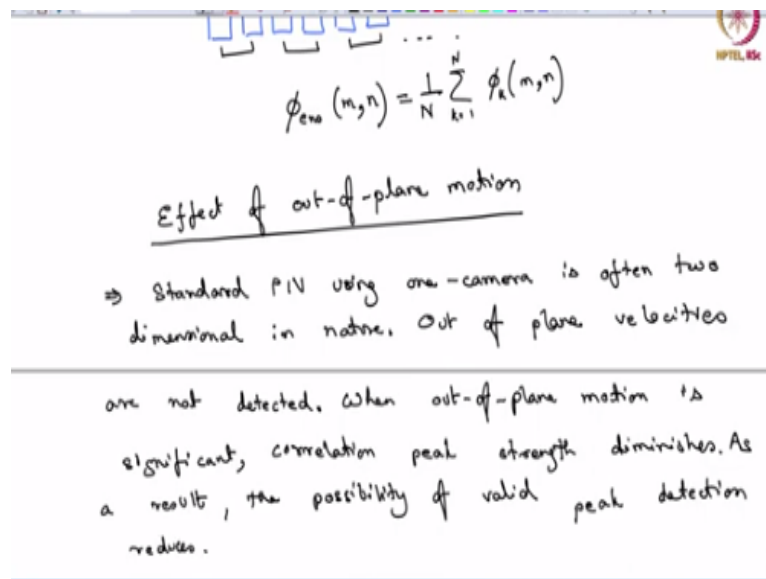 NPTEL, IISc
....
ϕ_ens (m,n) = 1/N Σ_{k=1}^{N} ϕ_k(m,n)
Effect of out-of-plane motion
⇒ Standard PIV using one-camera is often two
dimensional in nature. Out of plane velocities
are not detected. When out-of-plane motion is
significant, correlation peak strength diminishes. As
a result, the possibility of valid peak detection
reduces.